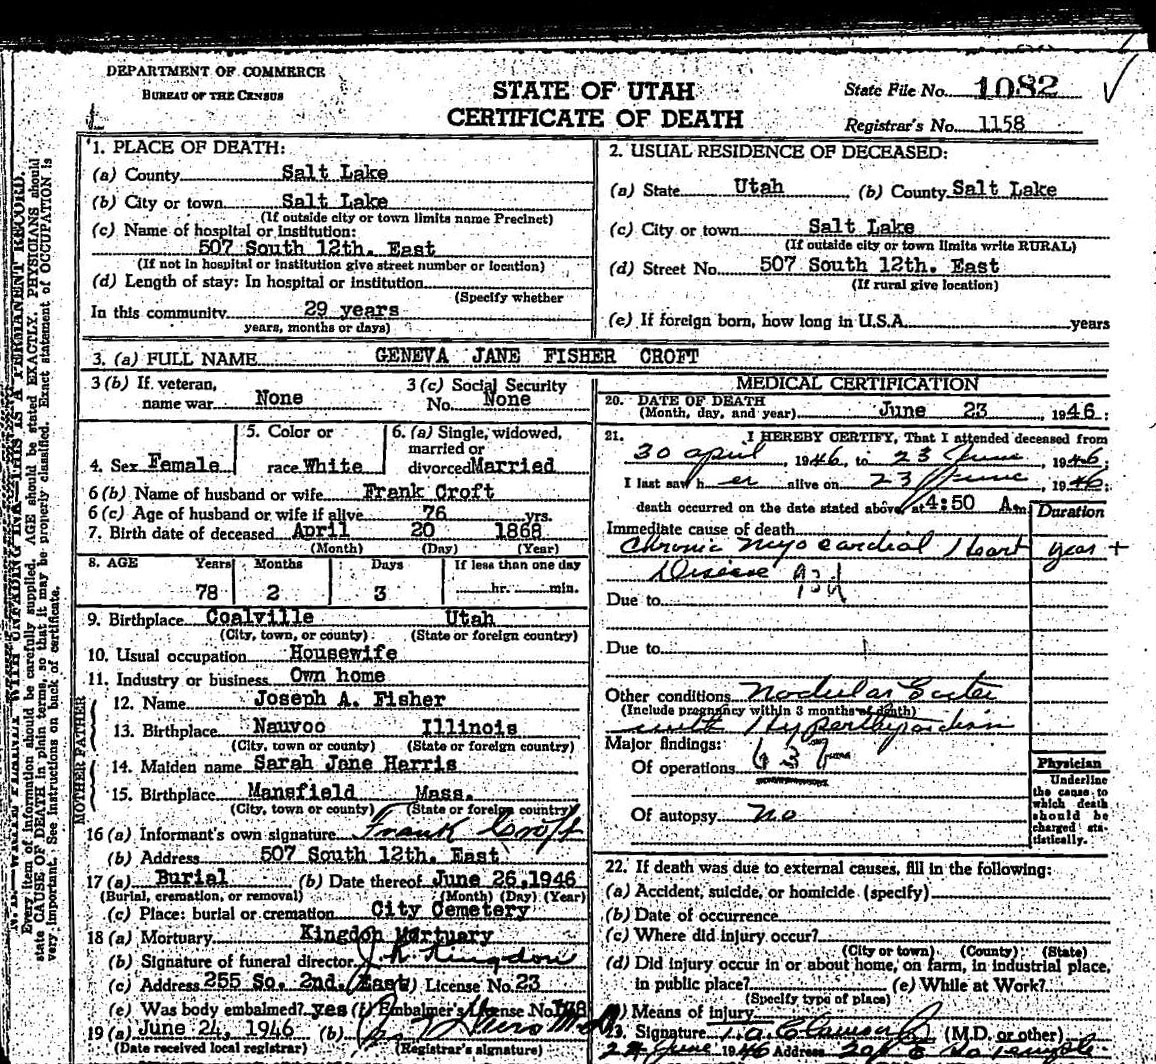 DEPARTMENT OF COMMERCE
BUREAU OF THE CENSUS
STATE OF UTAH
CERTIFICATE OF DEATH
State File No. 1082
Registrar's No. 1158
1. PLACE OF DEATH:
(a) County Salt Lake
(b) City or town Salt Lake
(If outside city or town limits name Precinct)
(c) Name of hospital or institution:
507 South 12th. East
(If not in hospital or institution give street number or location)
(d) Length of stay: In hospital or institution
(Specify whether
In this community 29 years
years, months or days)
2. USUAL RESIDENCE OF DECEASED:
(a) State Utah (b) County Salt Lake
(c) City or town Salt Lake
(If outside city or town limits write RURAL)
(d) Street No. 507 South 12th. East
(If rural give location)
(e) If foreign born, how long in U.S.A. years
3. (a) FULL NAME GENEVA JANE FISHER CROFT
3 (b) If veteran, name war None
3 (c) Social Security No. None
4. Sex Female
5. Color or race White
6. (a) Single, widowed, married or divorced Married
6 (b) Name of husband or wife Frank Croft
6 (c) Age of husband or wife if alive 76 yrs.
7. Birth date of deceased April 20 1868
(Month) (Day) (Year)
8. AGE Years Months Days If less than one day
78 2 3 hr. min.
9. Birthplace Coalville Utah
(City, town, or county) (State or foreign country)
10. Usual occupation Housewife
11. Industry or business Own home
FATHER
12. Name Joseph A. Fisher
13. Birthplace Nauvoo Illinois
(City, town or county) (State or foreign country)
MOTHER
14. Maiden name Sarah Jane Harris
15. Birthplace Mansfield Mass.
(City, town or county) (State or foreign country)
16 (a) Informant's own signature Frank Croft
(b) Address 507 South 12th. East
17 (a) Burial (b) Date thereof June 26, 1946
(Burial, cremation, or removal) (Month) (Day) (Year)
(c) Place: burial or cremation City Cemetery
18 (a) Mortuary Kingdon Mortuary
(b) Signature of funeral director Kingdon
(c) Address 255 So. 2nd. East License No. 23
(e) Was body embalmed? yes (f) Embalmer's License No. 178
19 (a) June 24, 1946 (b)
(Date received local registrar) (Registrar's signature)
MEDICAL CERTIFICATION
20. DATE OF DEATH
(Month, day, and year) June 23, 1946
21. I HEREBY CERTIFY, That I attended deceased from
30 april, 1946, to 23 June, 1946;
I last saw h er alive on 23 June, 1946;
death occurred on the date stated above at 4:50 A m
Duration
Immediate cause of death
Chronic Myocardial Heart year +
Disease 93d
Due to
Due to
Other conditions Nodular Goiter
(Include pregnancy within 3 months of death)
with Hyperthyroidism
Major findings:
Of operations 63
Of autopsy no
Physician
Underline
the cause to
which death
should be
charged sta-
tistically.
22. If death was due to external causes, fill in the following:
(a) Accident, suicide, or homicide (specify)
(b) Date of occurrence
(c) Where did injury occur?
(City or town) (County) (State)
(d) Did injury occur in or about home, on farm, in industrial place,
in public place? (e) While at Work?
(Specify type of place)
Means of injury
Signature (M.D. or other)
June 1946 Address
THIS IS A PERMANENT RECORD.
Every item of information should be carefully supplied. AGE should be stated EXACTLY. PHYSICIANS should
state CAUSE OF DEATH in plain terms, so that it may be properly classified. Exact statement of OCCUPATION is
very important. See instructions on back of certificate.